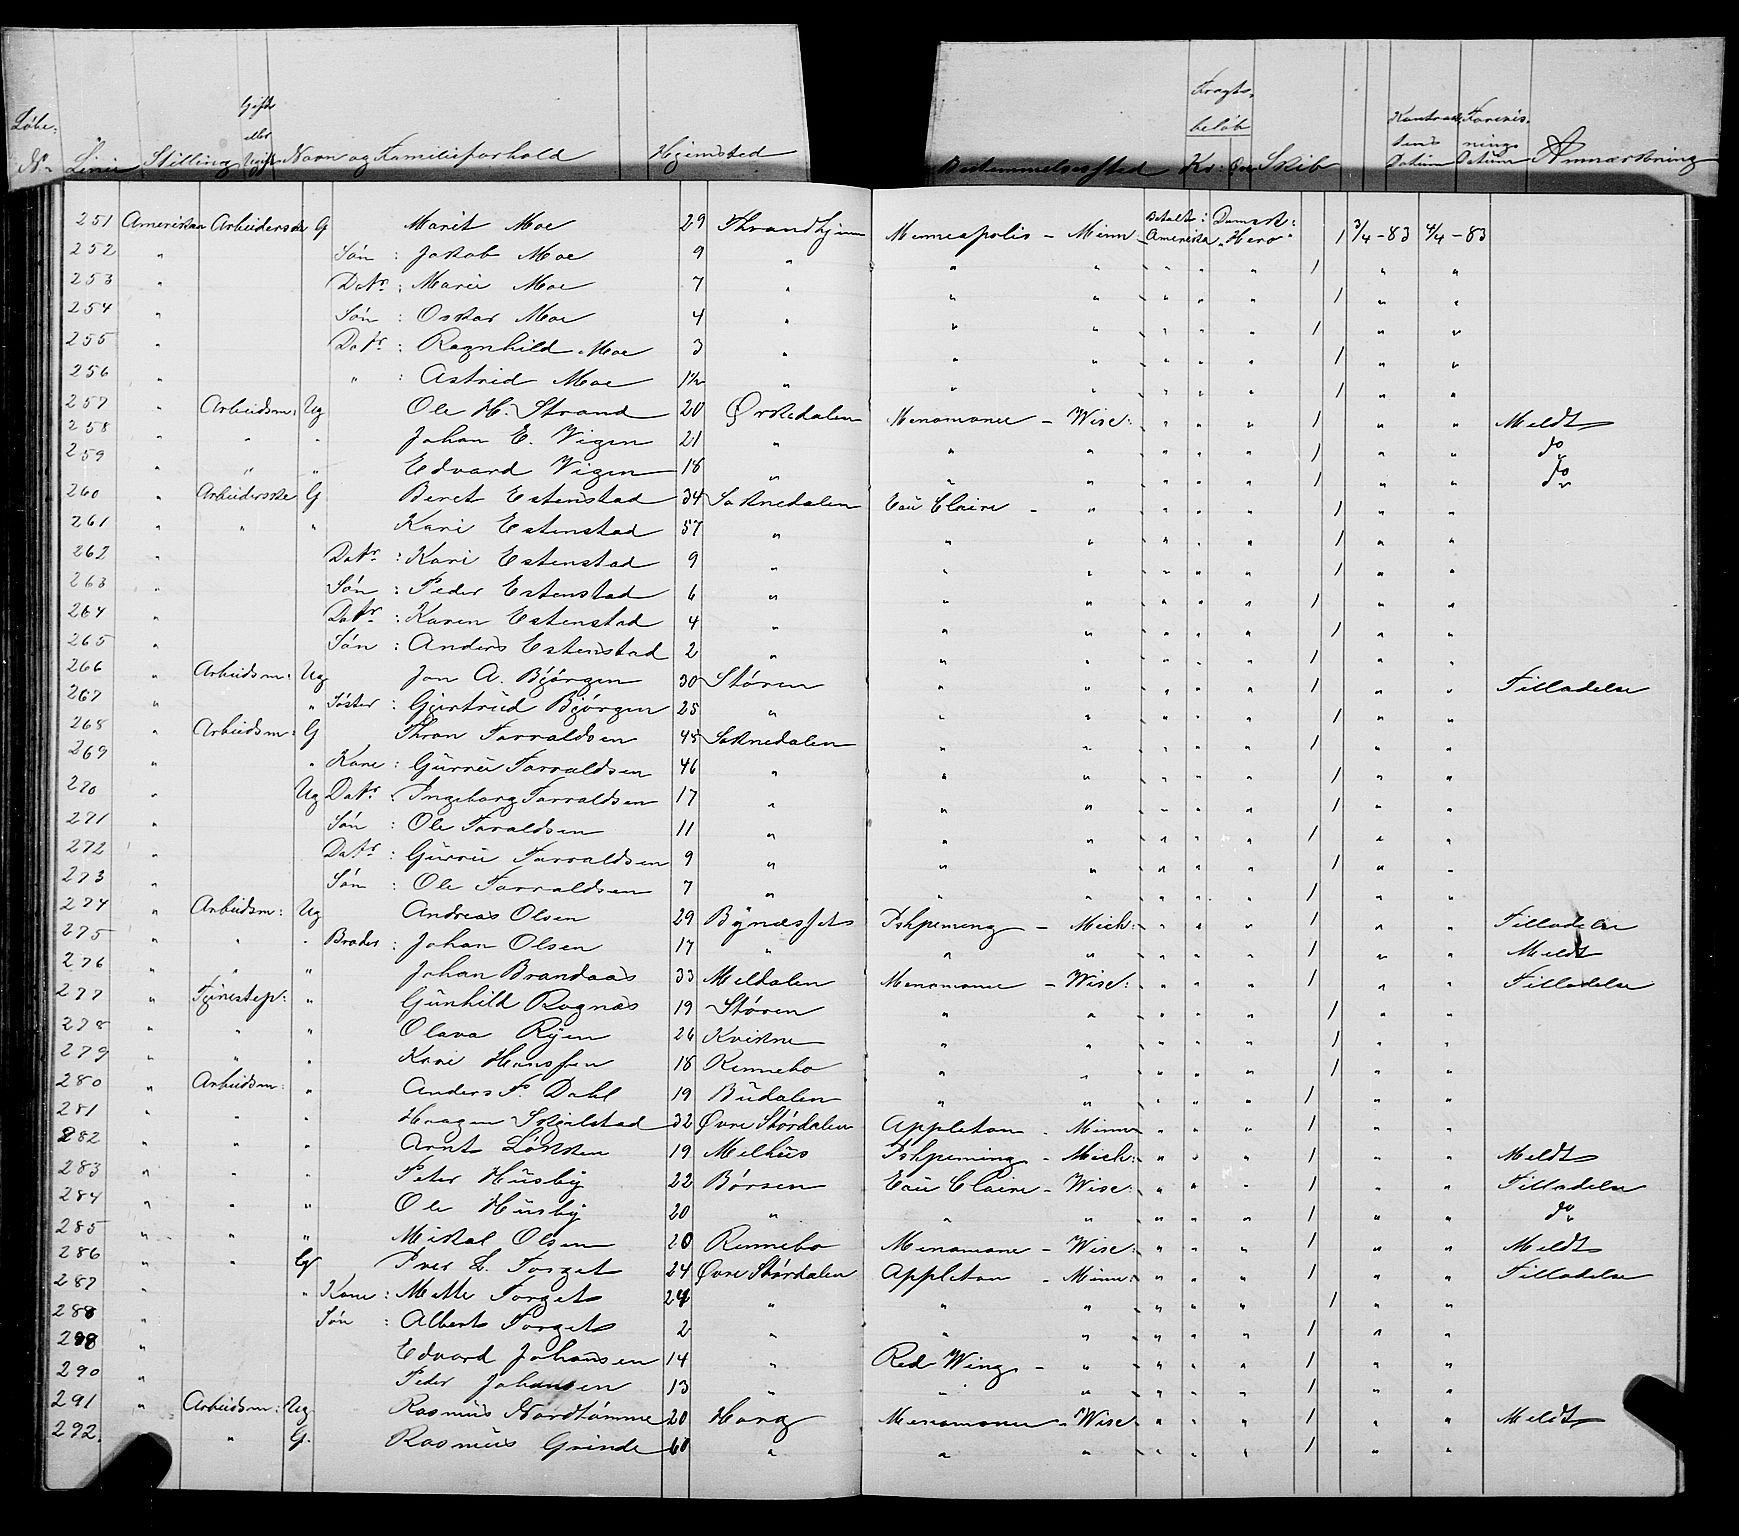 Løbe- Gift Fragts-
eller beløb Kontrak- Forevis-
tens nings
No Linie Stilling Ugift Navn og Familieforhold Hjemsted Bestemmelsessted Kr: Øre Skib Datum Datum Anmærkning
251 Amerikan Arbeiderske G Marit Moe 29 Throndhjem Minneapolis - Minn: Betalt i Amerika Dampsk: "Hero" 1 3/4-83 4/4-83
252 " Søn : Jakob Moe 9 " " " " " " 1 " "
253 " Datr : Marie Moe 7 " " " " " " 1 " "
254 " Søn : Oskar Moe 4 " " " " " " 1 " "
255 " Datr : Ragnhild Moe 3 " " " " " " 1 " "
256 " " : Astrid Moe 1½ " " " " " " 1 " "
257 " Arbeidsm: Ug Ole H. Strand 20 Ørkedalen Menomonee - Wisc: " " " 1 " " Meldt
258 " " " Johan E. Vigen 21 " " " " " " 1 " " do
259 " " " Edvard Vigen 18 " " " " " " 1 " " do
260 " Arbeiderske G Beret Estenstad 34 Soknedalen Eau Claire - " " " " 1 " "
261 " " " Kari Estenstad 57 " " " " " " 1 " "
262 " Datr : Kari Estenstad 9 " " " " " " 1 " "
263 " Søn : Peder Estenstad 6 " " " " " " 1 " "
264 " Datr : Karen Estenstad 4 " " " " " " 1 " "
265 " Søn : Anders Estenstad 2 " " " " " " 1 " "
266 " Arbeidsm: Ug Jon A. Bjørgen 30 Støren " " " " " 1 " " Tilladelse
267 " " Søster : Gjertrud Bjørgen 25 " " " " " " 1 " "
268 " Arbeidsm: G Thron Tarraldsen 45 Soknedalen " " " " " 1 " "
269 " " Kone : Gurrie Tarraldsen 46 " " " " " " 1 " "
270 " Ug Datr : Ingeborg Tarraldsen 17 " " " " " " 1 " "
271 " Søn : Ole Taraldsen 11 " " " " " " 1 " "
272 " Datr : Gurrie Tarraldsen 9 " " " " " " 1 " "
273 " Søn : Ole Tarraldsen 7 " " " " " " 1 " "
274 " Arbeidsm: Ug Andreas Olsen 29 Bynæsset Ishpeming - Mich: " " " 1 " " Tilladelse
275 " " " Broder : Johan Olsen 17 " " " " " " 1 " " Meldt
276 " " " Johan Brandaas 33 Meldalen Menomonee - Wisc: " " " 1 " " Tilladelse
277 " Tjenestep: " Gunhild Rognæs 19 Støren " " " " " 1 " "
278 " " " Olava Ryen 26 Kvikne " " " " " 1 " "
279 " " " Kari Hansen 18 Rennebo " " " " " 1 " "
280 " Arbeidsm: " Anders F. Dahl 19 Budalen " " " " " 1 " "
281 " " " Haagen Skjelstad 32 Øvre Størdalen Appleton - Minn " " " 1 " "
282 " " " Arnt Løkken 19 Melhus Ishpeming - Mich: " " " 1 " " Meldt
283 " " " Peter Husby 22 Børsen Eau Claire - Wisc: " " " 1 " " Tilladelse
284 " " " Ole Husby 20 " " " " " " 1 " " do
285 " " " Mikal Olsen 20 Rennebo Menomonee - Wisc: " " " 1 " " Meldt
286 " " G Iver L. Torget 24 Øvre Størdalen Appleton - Minn: " " " 1 " " Tilladelse
287 " " Kone : Mette Torget 24 " " " " " " 1 " "
288 " Søn : Albert Torget 2 " " " " " " 1 " "
289 " Edvard Johansen 14 " Red Wing - " " " " 1 " "
290 " Peder Johansen 13 " " " " " " 1 " "
291 " Arbeidsm: Ug Rasmus Nordtømme 20 Horg Menomonee - Wisc: " " " 1 " " Meldt
292. " G. Rasmus Grinde 60 " " " " " " 1 " "